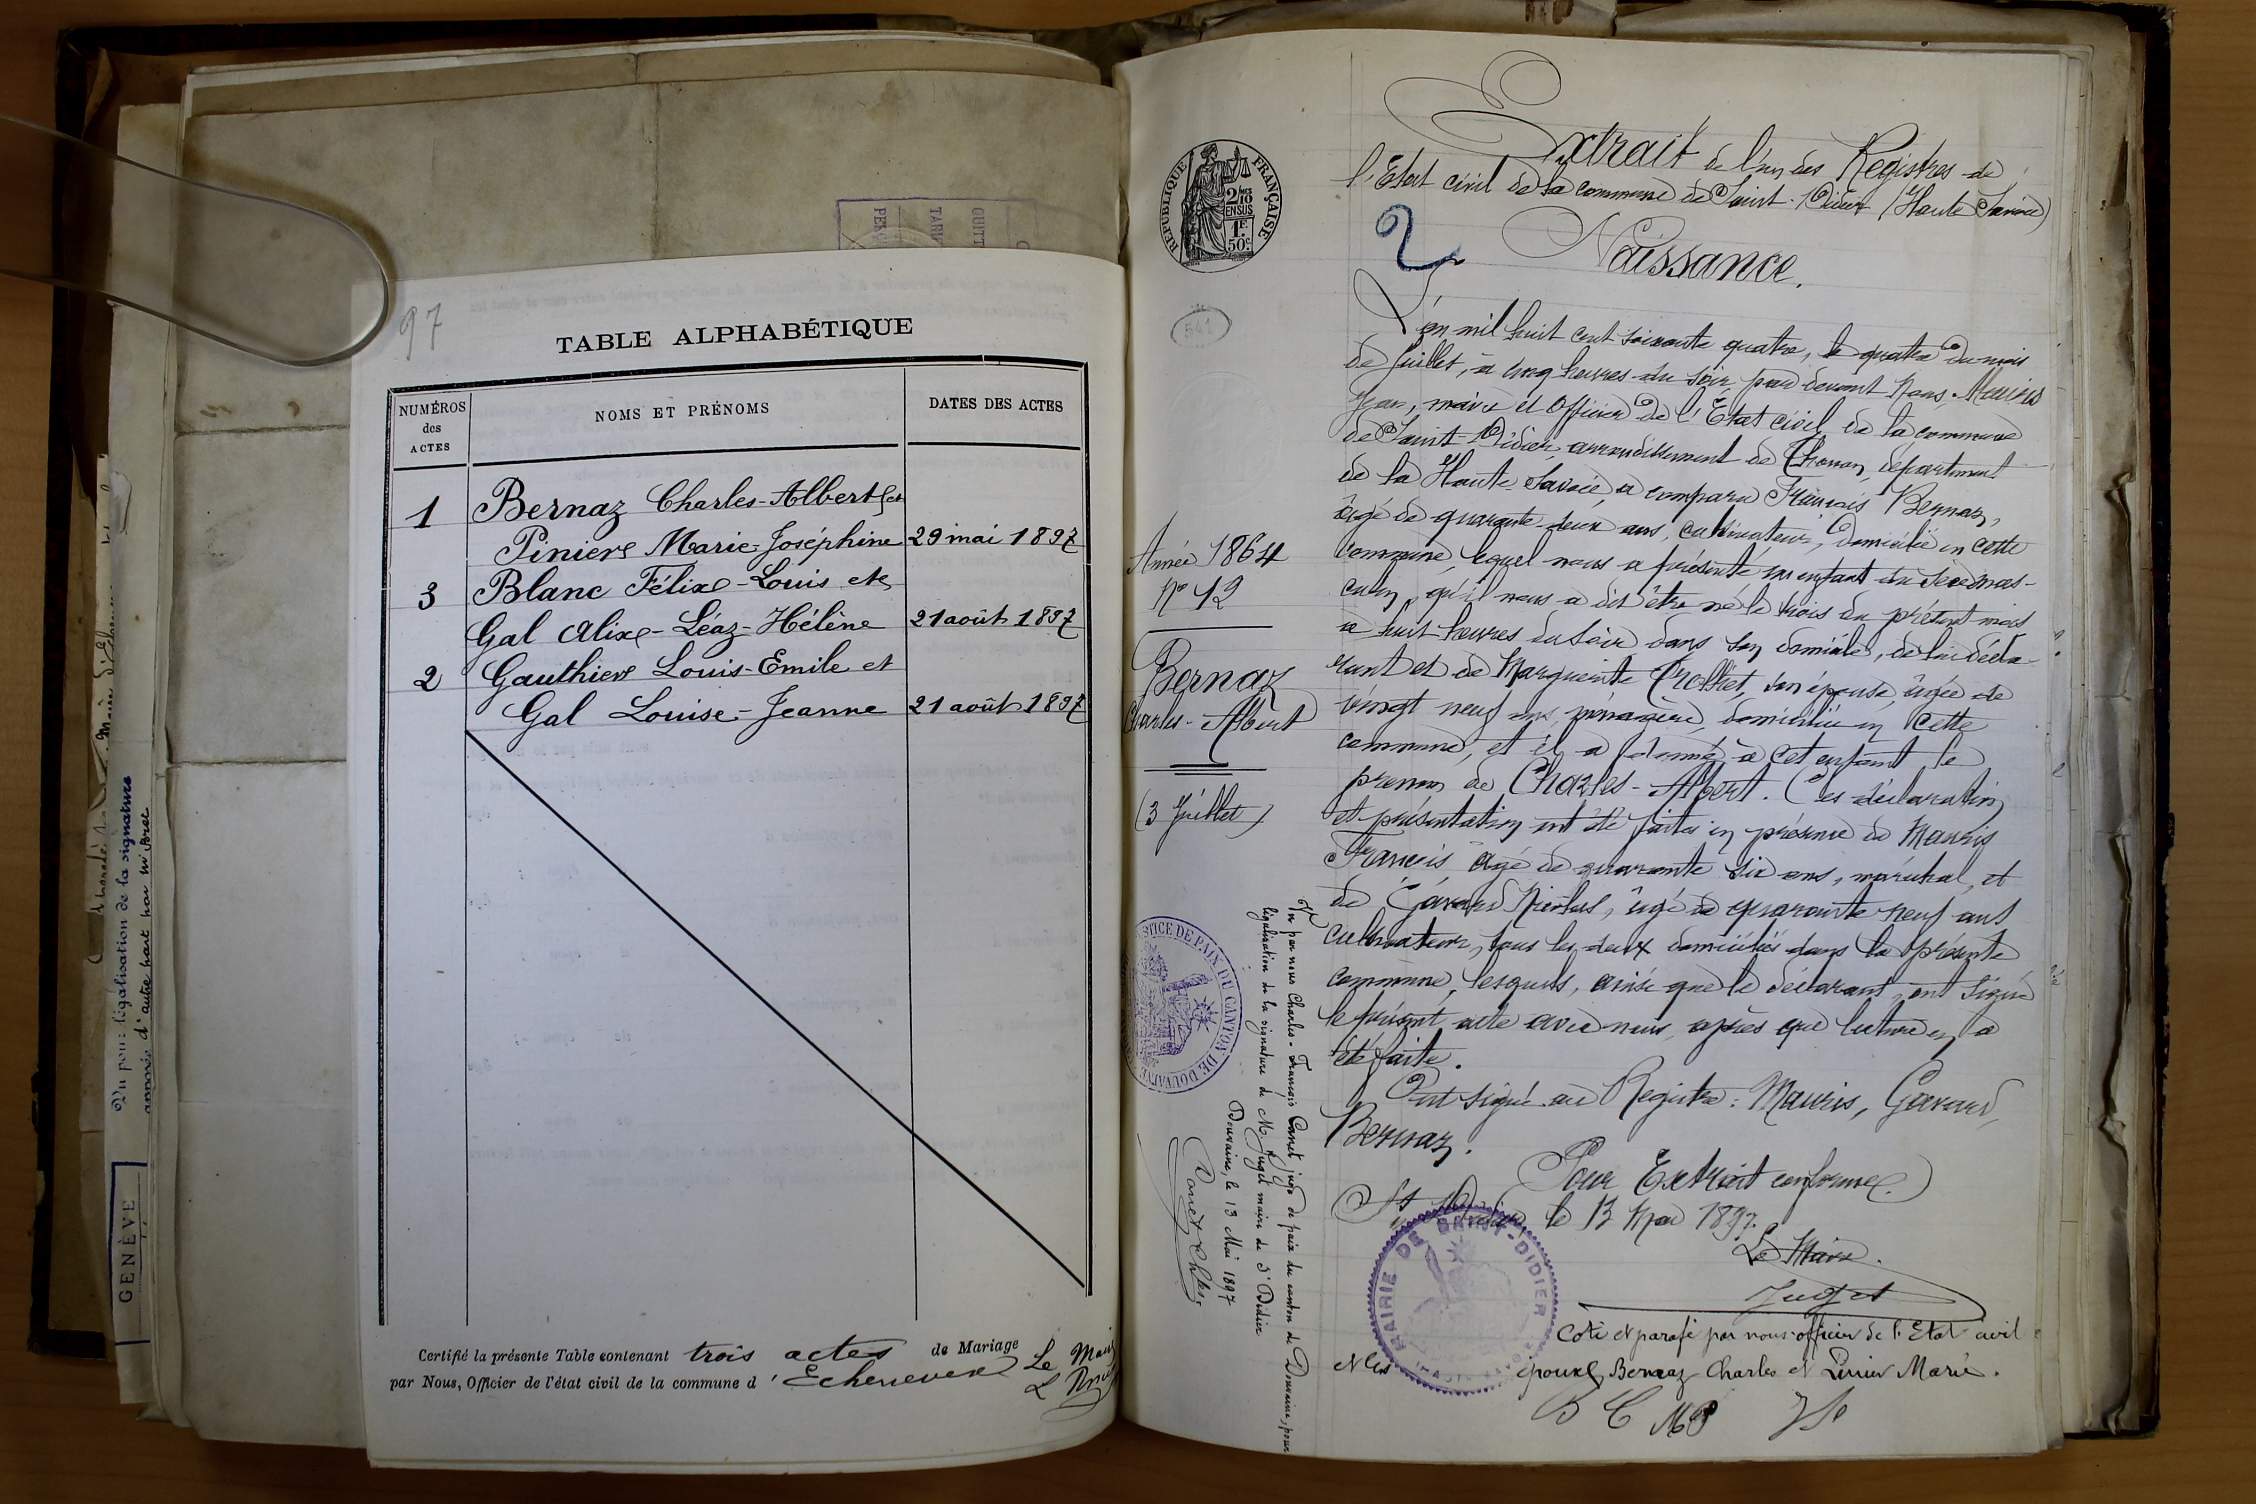 97
TABLE ALPHABÉTIQUE
NUMÉROS des ACTES
NOMS ET PRÉNOMS
DATES DES ACTES
1 Bernaz Charles-Albert et
Pinier Marie-Joséphine 29 mai 1897
3 Blanc Félix-Louis et
Gal Alix-Léaz-Hélène 21 août 1897
2 Gauthier Louis-Emile et
Gal Louise-Jeanne 21 août 1897
Certifié la présente Table contenant trois actes de Mariage
par Nous, Officier de l'état civil de la commune d'Echenevex
Le
Vu pour légalisation de la signature
apposée d'autre part
GENÈVE
RÉPUBLIQUE FRANÇAISE
2/10 EN SUS
1F. 50c.
541
Extrait de l'un des Registres de
l'Etat civil de la commune de Saint-Didier (Haute Savoie)
2
Naissance.
L'an mil huit cent soixante quatre, le quatre du mois
de Juillet, à cinq heures du soir, par devant Nous, Mauris
Jean, maire et Officier de l'Etat civil de la commune
de Saint-Didier, arrondissement de Thonon, département
de la Haute Savoie, a comparu François Bernaz,
âgé de quarante-deux ans, cultivateur, domicilié en cette
commune, lequel nous a présenté un enfant du sexe mas-
culin, qu'il nous a dit être né le trois du présent mois
à huit heures du soir dans son domicile, de lui décla-
rant et de Marguerite son épouse, âgée de
vingt neuf ans, ménagère, domiciliée en cette
commune, et il a donné à cet enfant le
prénom de Charles-Albert. Ces déclaration
et présentation ont été faites en présence de Mauris
François, âgé de quarante six ans, maréchal, et
de Gavard Nicolas, âgé de quarante neuf ans
cultivateur, tous les deux domiciliés dans la présente
commune, lesquels, ainsi que le déclarant, ont signé
le présent acte avec nous, après que lecture en a
été faite.
Ont signé au Registre: Mauris, Gavard,
Bernaz.
Pour Extrait conforme.
St Didier le 13 Mai 1897.
Le Maire.
Juget
Année 1864
No 12
Bernaz
Charles-Albert
(3 Juillet)
JUSTICE DE PAIX DU CANTON DE DOUVAINE
Vu par nous Charles-François Canet juge de paix du canton de Douvaine, pour
légalisation de la signature de M. Juget maire de St Didier
Douvaine, le 13 Mai 1897
MAIRIE DE SAINT-DIDIER
Coté et parafé par nous officier de l'Etat civil
et les époux Bernaz Charles et Pinier Marie.
B C MP